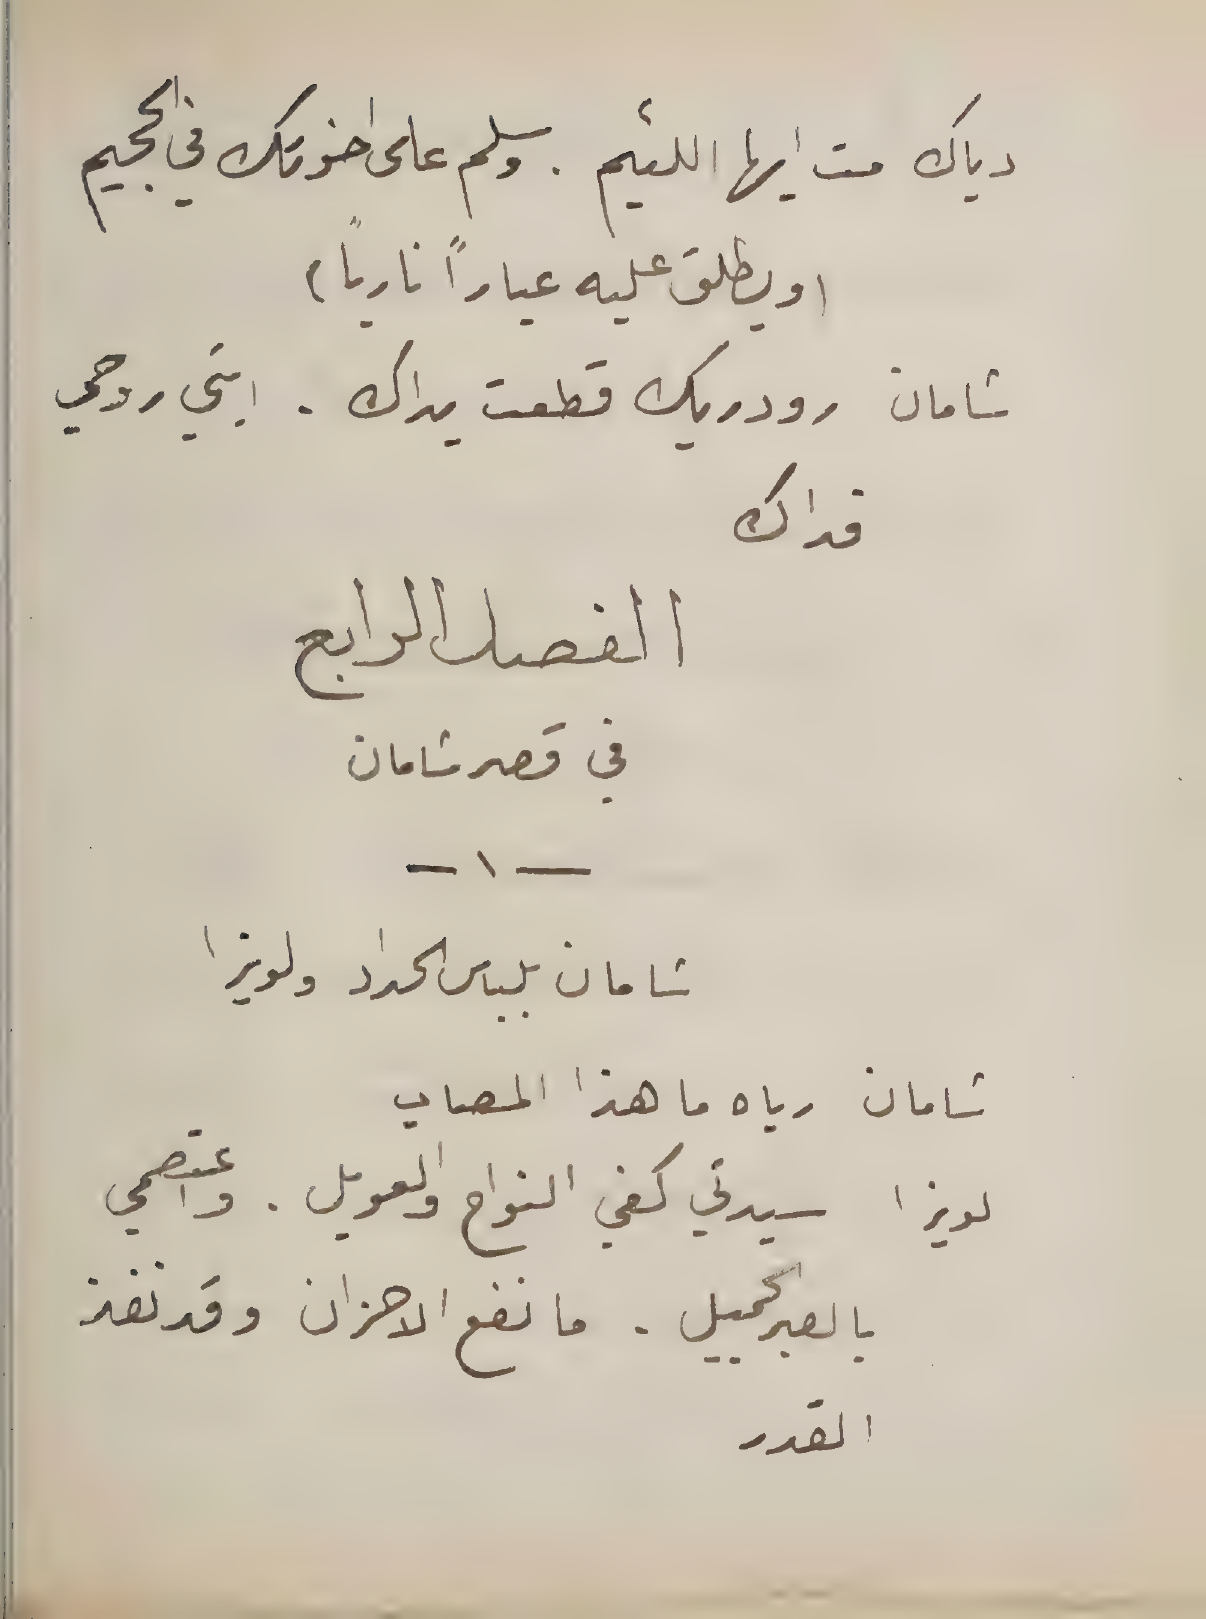 دياك مت ايها اللئيم . وسلم على اخوتك في الجحيم
(ويطلق عليه عياراً نارياً)
شامان رودريك قطعت يداك . ابني روحي
فداك
الفصل الرابع
في قصر شامان
— ١ —
شامان بلباس الحداد ولويزا
شامان رباه ما هذا المصاب
لويزا سيدتي كفي النواح والعويل . واعتصمي
بالصبر الجميل . ما نفع الاحزان وقد نفذ
القدر